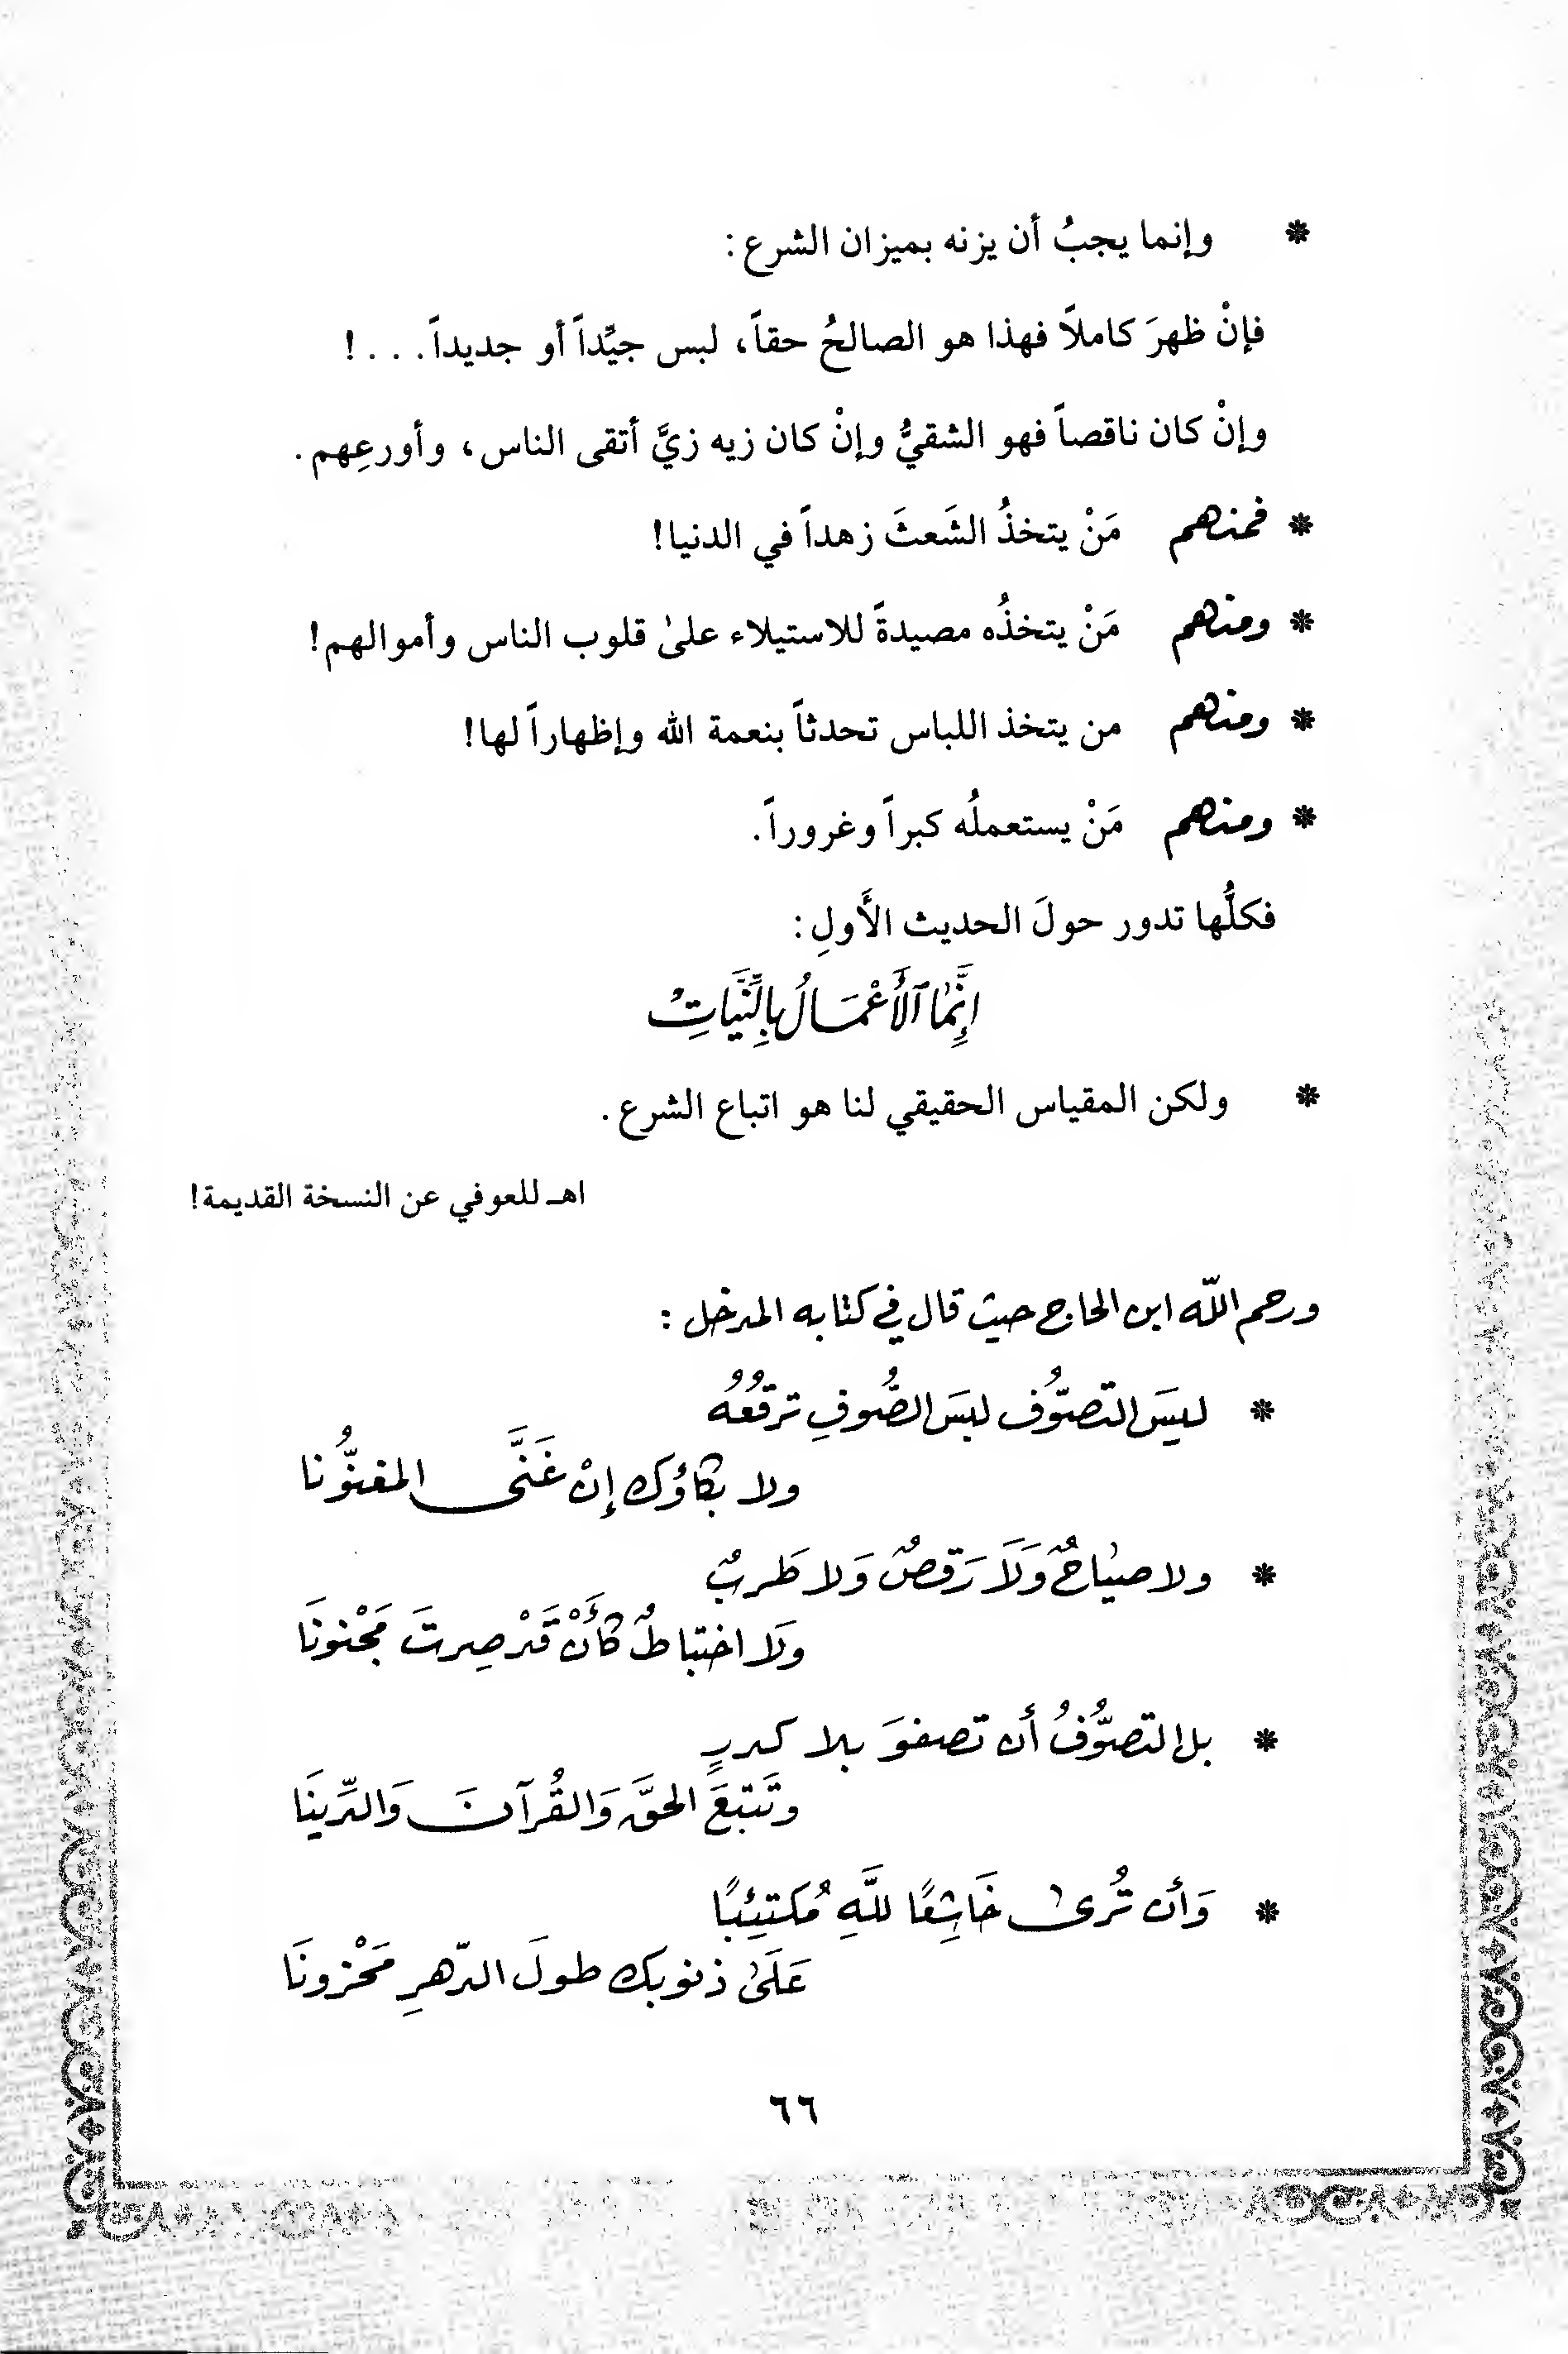 * وإنما يجبُ أن يزنه بميزان الشرع :
فإنْ ظهرَ كاملاً فهذا هو الصالحُ حقاً، لبس جيِّداً أو جديداً . . . !
وإنْ كان ناقصاً فهو الشقيُّ وإنْ كان زيه زيَّ أتقى الناس، وأورعِهم .
* فمنهم مَنْ يتخذُ الشَعثَ زهداً في الدنيا!
* ومنهم مَنْ يتخذُه مصيدةً للاستيلاء علىٰ قلوب الناس وأموالهم!
* ومنهم من يتخذ اللباس تحدثاً بنعمة الله وإظهاراً لها!
* ومنهم مَنْ يستعملُه كبراً وغروراً .
فكلُّها تدور حولَ الحديث الأَولِ :
إِنَّمَا ٱلأَعْمَالُ بِالنِّيَّاتِ
* ولكن المقياس الحقيقي لنا هو اتباع الشرع .
اهـ للعوفي عن النسخة القديمة!
ورحم اللّه ابن الحاج حيث قال في كتابه المدخل :
* ليسَ التصوّفُ لبسَ الصُّوفِ ترقّعُهُ
ولا بكاؤك إنْ غَنَّى المغنُّونا
* ولا صيٰاحٌ وَلَا رَقصٌ وَلا طَربٌ
ولَا اختباطٌ كأَنْ قَدْ صِرتَ مَجْنونَا
* بل التصوُّفُ أُن تصفوَ بلا كدرٍ
وتَتبعَ الحقَّ وَالقُرآنَ وَالدِّينَا
* وَأن تُرىٰ خَاشِعًا للَّهِ مُكتئِبًا
عَلَىٰ ذنوبك طولَ الدّهرِ مَحْزونَا
٦٦